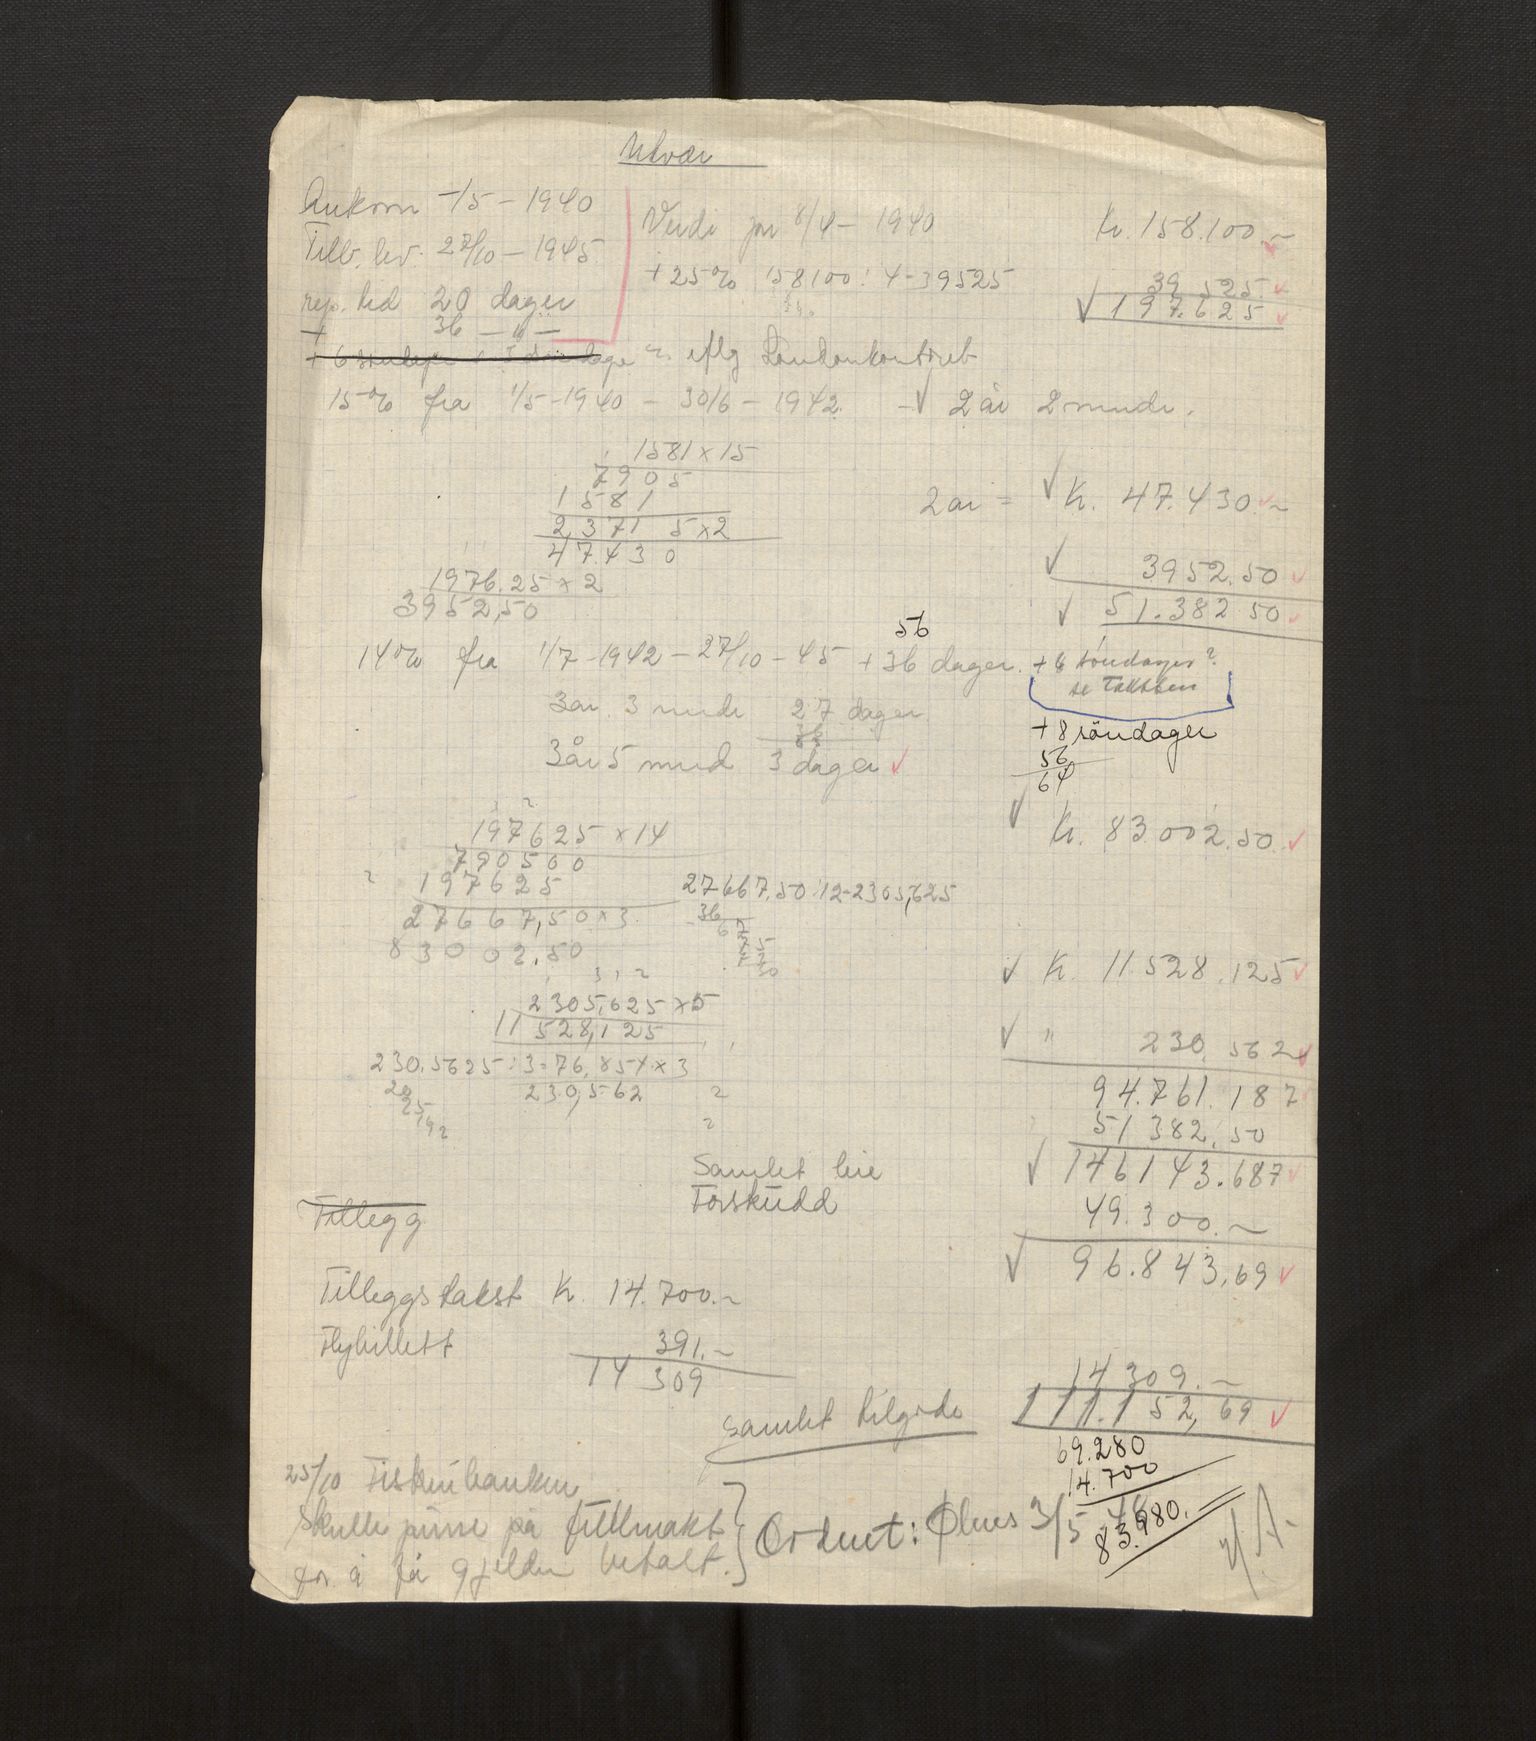 Utvær
Ankom -/5 - 1940
Verdi pr 8/4 - 1940 Kr. 158.100.~
Tilb. lev. 27/10 - 1945
+ 25% 158100 : 4 = 39525 39 525.
rep. tid 20 dager
197.625
+ 36 - " -
eflg Londonkontoret
15% fra 1/5 - 1940 - 30/6 - 1942. - 2 år 2 mndr.
1581 x 15
7905
1581
2371 5 x 2
47430
2 år = K. 47.430.~
1976.25 x 2
3952,50
3952.50
51.382 50
56
14% fra 1/7 - 1942 - 27/10 - 45 + 36 dager. + 6 söndager?
se taksten
3 år 3 mndr 27 dager
36
63
+ 8 söndager
56
64
3 år 5 mnd 3 dager
Kr. 83 002.50
197625 x 14
790500
197625
27667,50 x 3
83002.50
27667,50 : 12 = 2305,625
36
K. 11.528.125
2305,625 x 5
11 528,125
" 230.562
230.5625 : 3 = 76,854 x 3
230,562
20
25
94.761.187
51 382.50
Samlet leie 146143.687
Forskudd 49.300.~
96.843,69
Tillegg
Tilleggstakst K. 14.700.~
Flybillett 391.~
14 309
14 309.~
Samlet tilgode 111.152,69
69.280
14.700
83.980.
25/10 Fiskeribanken
Skulle purre på fullmakt
for å få gjelden betalt.
Ordnet: 3/5 48